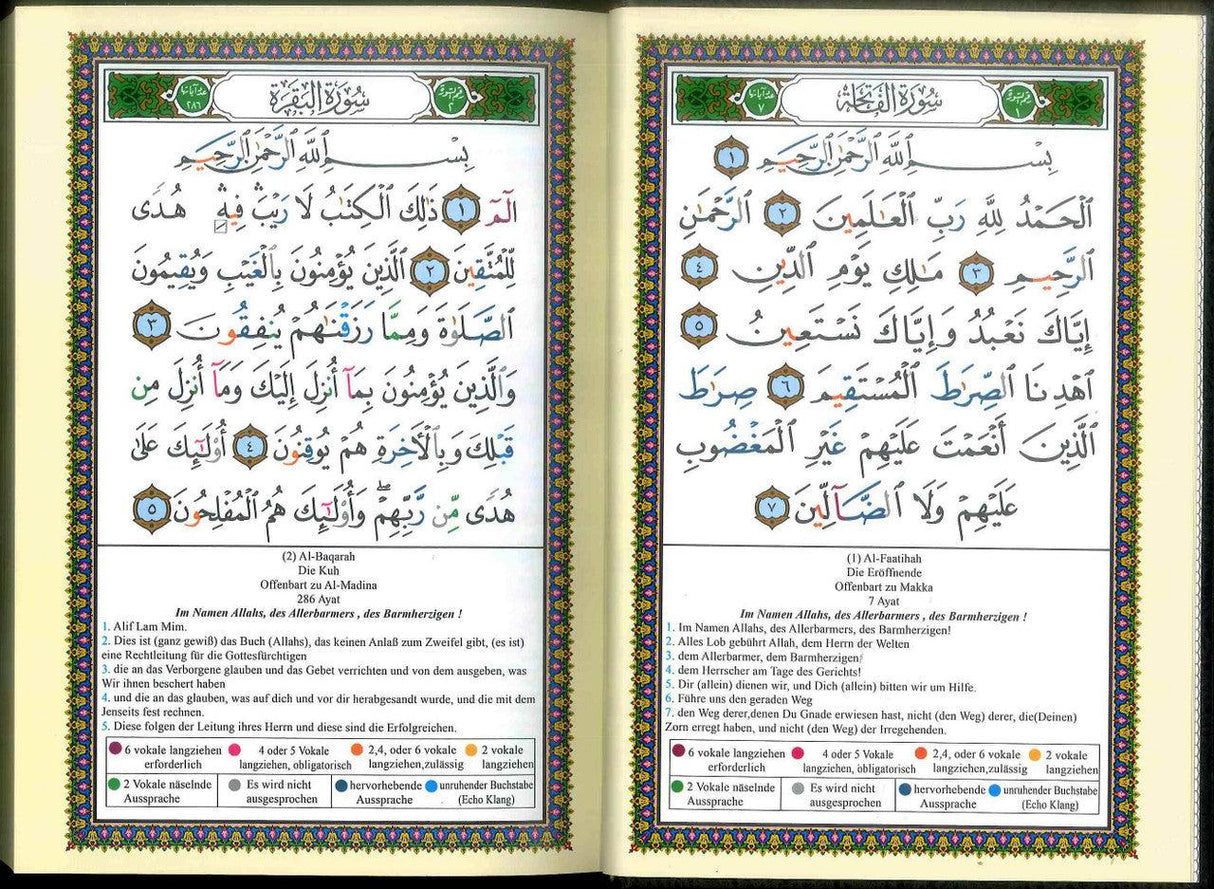 رقم السورة ١ سُورَةُ الْفَاتِحَةِ عدد آياتها ٧
بِسْمِ ٱللَّهِ ٱلرَّحْمَٰنِ ٱلرَّحِيمِ ١
ٱلْحَمْدُ لِلَّهِ رَبِّ ٱلْعَٰلَمِينَ ٢ ٱلرَّحْمَٰنِ
ٱلرَّحِيمِ ٣ مَٰلِكِ يَوْمِ ٱلدِّينِ ٤
إِيَّاكَ نَعْبُدُ وَإِيَّاكَ نَسْتَعِينُ ٥
ٱهْدِنَا ٱلصِّرَٰطَ ٱلْمُسْتَقِيمَ ٦ صِرَٰطَ
ٱلَّذِينَ أَنْعَمْتَ عَلَيْهِمْ غَيْرِ ٱلْمَغْضُوبِ
عَلَيْهِمْ وَلَا ٱلضَّآلِّينَ ٧
(1) Al-Faatihah
Die Eröffnende
Offenbart zu Makka
7 Ayat
Im Namen Allahs, des Allerbarmers , des Barmherzigen !
1. Im Namen Allahs, des Allerbarmers, des Barmherzigen!
2. Alles Lob gebührt Allah, dem Herrn der Welten
3. dem Allerbarmer, dem Barmherzigen
4. dem Herrscher am Tage des Gerichts!
5. Dir (allein) dienen wir, und Dich (allein) bitten wir um Hilfe.
6. Führe uns den geraden Weg
7. den Weg derer,denen Du Gnade erwiesen hast, nicht (den Weg) derer, die(Deinen)
Zorn erregt haben, und nicht (den Weg) der Irregehenden.
6 vokale langziehen 4 oder 5 Vokale 2,4, oder 6 vokale 2 vokale
erforderlich langziehen, obligatorisch langziehen,zulässig langziehen
2 Vokale näselnde Es wird nicht hervorhebende unruhender Buchstabe
Aussprache ausgesprochen Aussprache (Echo Klang)
رقم السورة ٢ سُورَةُ الْبَقَرَةِ عدد آياتها ٢٨٦
بِسْمِ ٱللَّهِ ٱلرَّحْمَٰنِ ٱلرَّحِيمِ
الٓمٓ ١ ذَٰلِكَ ٱلْكِتَٰبُ لَا رَيْبَ ۛ فِيهِ ۛ هُدًى
لِّلْمُتَّقِينَ ٢ ٱلَّذِينَ يُؤْمِنُونَ بِٱلْغَيْبِ وَيُقِيمُونَ
ٱلصَّلَوٰةَ وَمِمَّا رَزَقْنَٰهُمْ يُنفِقُونَ ٣
وَٱلَّذِينَ يُؤْمِنُونَ بِمَآ أُنزِلَ إِلَيْكَ وَمَآ أُنزِلَ مِن
قَبْلِكَ وَبِٱلْأَخِرَةِ هُمْ يُوقِنُونَ ٤ أُو۟لَٰٓئِكَ عَلَىٰ
هُدًى مِّن رَّبِّهِمْ ۖ وَأُو۟لَٰٓئِكَ هُمُ ٱلْمُفْلِحُونَ ٥
(2) Al-Baqarah
Die Kuh
Offenbart zu Al-Madina
286 Ayat
Im Namen Allahs, des Allerbarmers , des Barmherzigen !
1. Alif Lam Mim.
2. Dies ist (ganz gewiß) das Buch (Allahs), das keinen Anlaß zum Zweifel gibt, (es ist)
eine Rechtleitung für die Gottesfürchtigen
3. die an das Verborgene glauben und das Gebet verrichten und von dem ausgeben, was
Wir ihnen beschert haben
4. und die an das glauben, was auf dich und vor dir herabgesandt wurde, und die mit dem
Jenseits fest rechnen.
5. Diese folgen der Leitung ihres Herrn und diese sind die Erfolgreichen.
6 vokale langziehen 4 oder 5 Vokale 2,4, oder 6 vokale 2 vokale
erforderlich langziehen, obligatorisch langziehen,zulässig langziehen
2 Vokale näselnde Es wird nicht hervorhebende unruhender Buchstabe
Aussprache ausgesprochen Aussprache (Echo Klang)